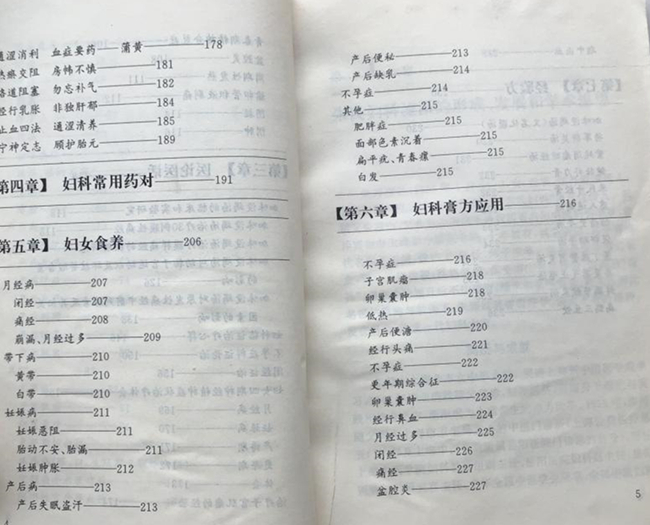 通涩消利 血症要药——蒲黄 178
热瘀交阻 房帏不慎 181
络道阻塞 勿忘补气 182
经行乳胀 非独肝郁 184
止血四法 通涩清养 185
宁神定志 顾护胎元 189
第四章】 妇科常用药对 191
第五章】 妇女食养 206
月经病 207
闭经 207
痛经 208
崩漏、月经过多 209
带下病 210
黄带 210
白带 210
妊娠病 211
妊娠恶阻 211
胎动不安、胎漏 211
妊娠肿胀 212
产后病 213
产后失眠盗汗 213
产后便秘 213
产后缺乳 214
不孕症 214
其他 215
肥胖症 215
面部色素沉着 215
扁平疣、青春瘰 215
白发 215
【第六章】 妇科膏方应用 216
不孕症 216
子宫肌瘤 218
卵巢囊肿 218
低热 219
产后便溏 220
经行头痛 221
不孕症 222
更年期综合征 222
卵巢囊肿 223
经行鼻血 224
月经过多 225
闭经 226
痛经 227
盆腔炎 227
5